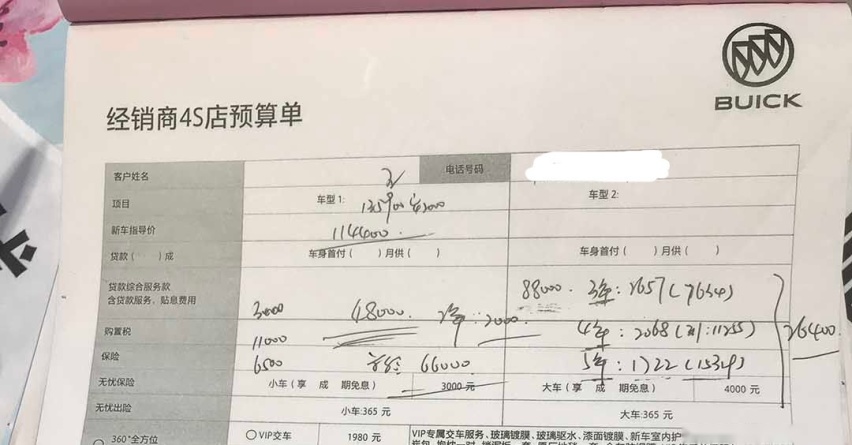 BUICK
经销商4S店预算单
客户姓名 电话号码
项目 车型1: 车型2:
新车指导价 114400
贷款( )成 车身首付( )月供( ) 车身首付( )月供( )
贷款综合服务款
含贷款服务、贴息费用 3000 48000. 2年:2000 88000. 3年:2657(7654)
购置税 11000 4年:2068(利:11255) 26400
保险 6500 66000 5年:1722(15329)
无忧保险 小车(享 成 期免息) 3000元 大车(享 成 期免息) 4000元
无忧出险 小车:365元 大车:365元
360°全方位 VIP交车 1980元 VIP专属交车服务、玻璃镀膜、玻璃驱水、漆面镀膜、新车室内护